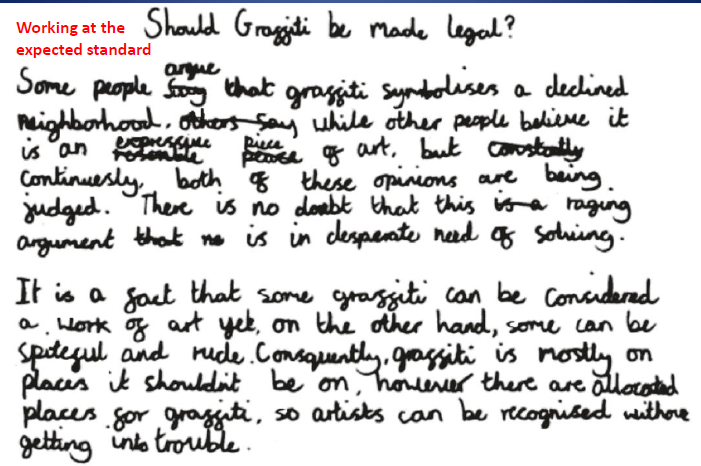 Working at the
expected standard
Should Graffiti be made legal?
argue
Some people say that graffiti symbolises a declined
neighborhood, others say while other people believe it
expressive piece
is an resemble peace of art, but constantly
Continuesly, both of these opinions are being
judged. There is no doubt that this is a raging
argument that no is in desperate need of solving.
It is a fact that some graffiti can be considered
a work of art yet, on the other hand, some can be
spiteful and rude. Consquently, graffiti is mostly on
places it should'nt be on, however there are allocated
places for graffiti, so artists can be recognised without
getting into trouble.